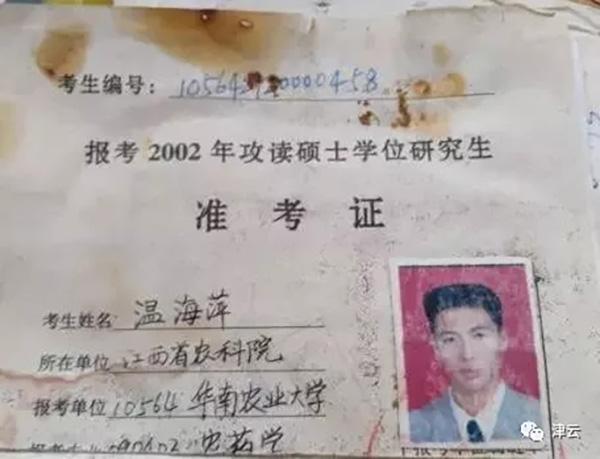 考生编号: 10564 0000458
报考2002年攻读硕士学位研究生
准考证
考生姓名 温海萍
所在单位 江西省农科院
报考单位 10564 华南农业大学
津云